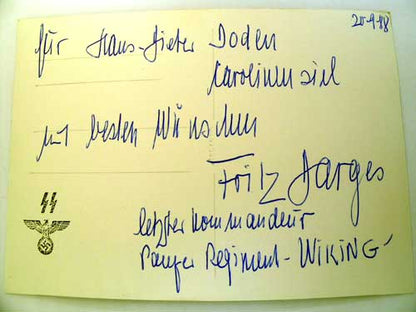 20-9-88
für Hans-Dieter Doden
Carolinensiel
mit besten Wünschen
Fritz Darges
letzter Kommandeur
Panzer Regiment - WIKING'